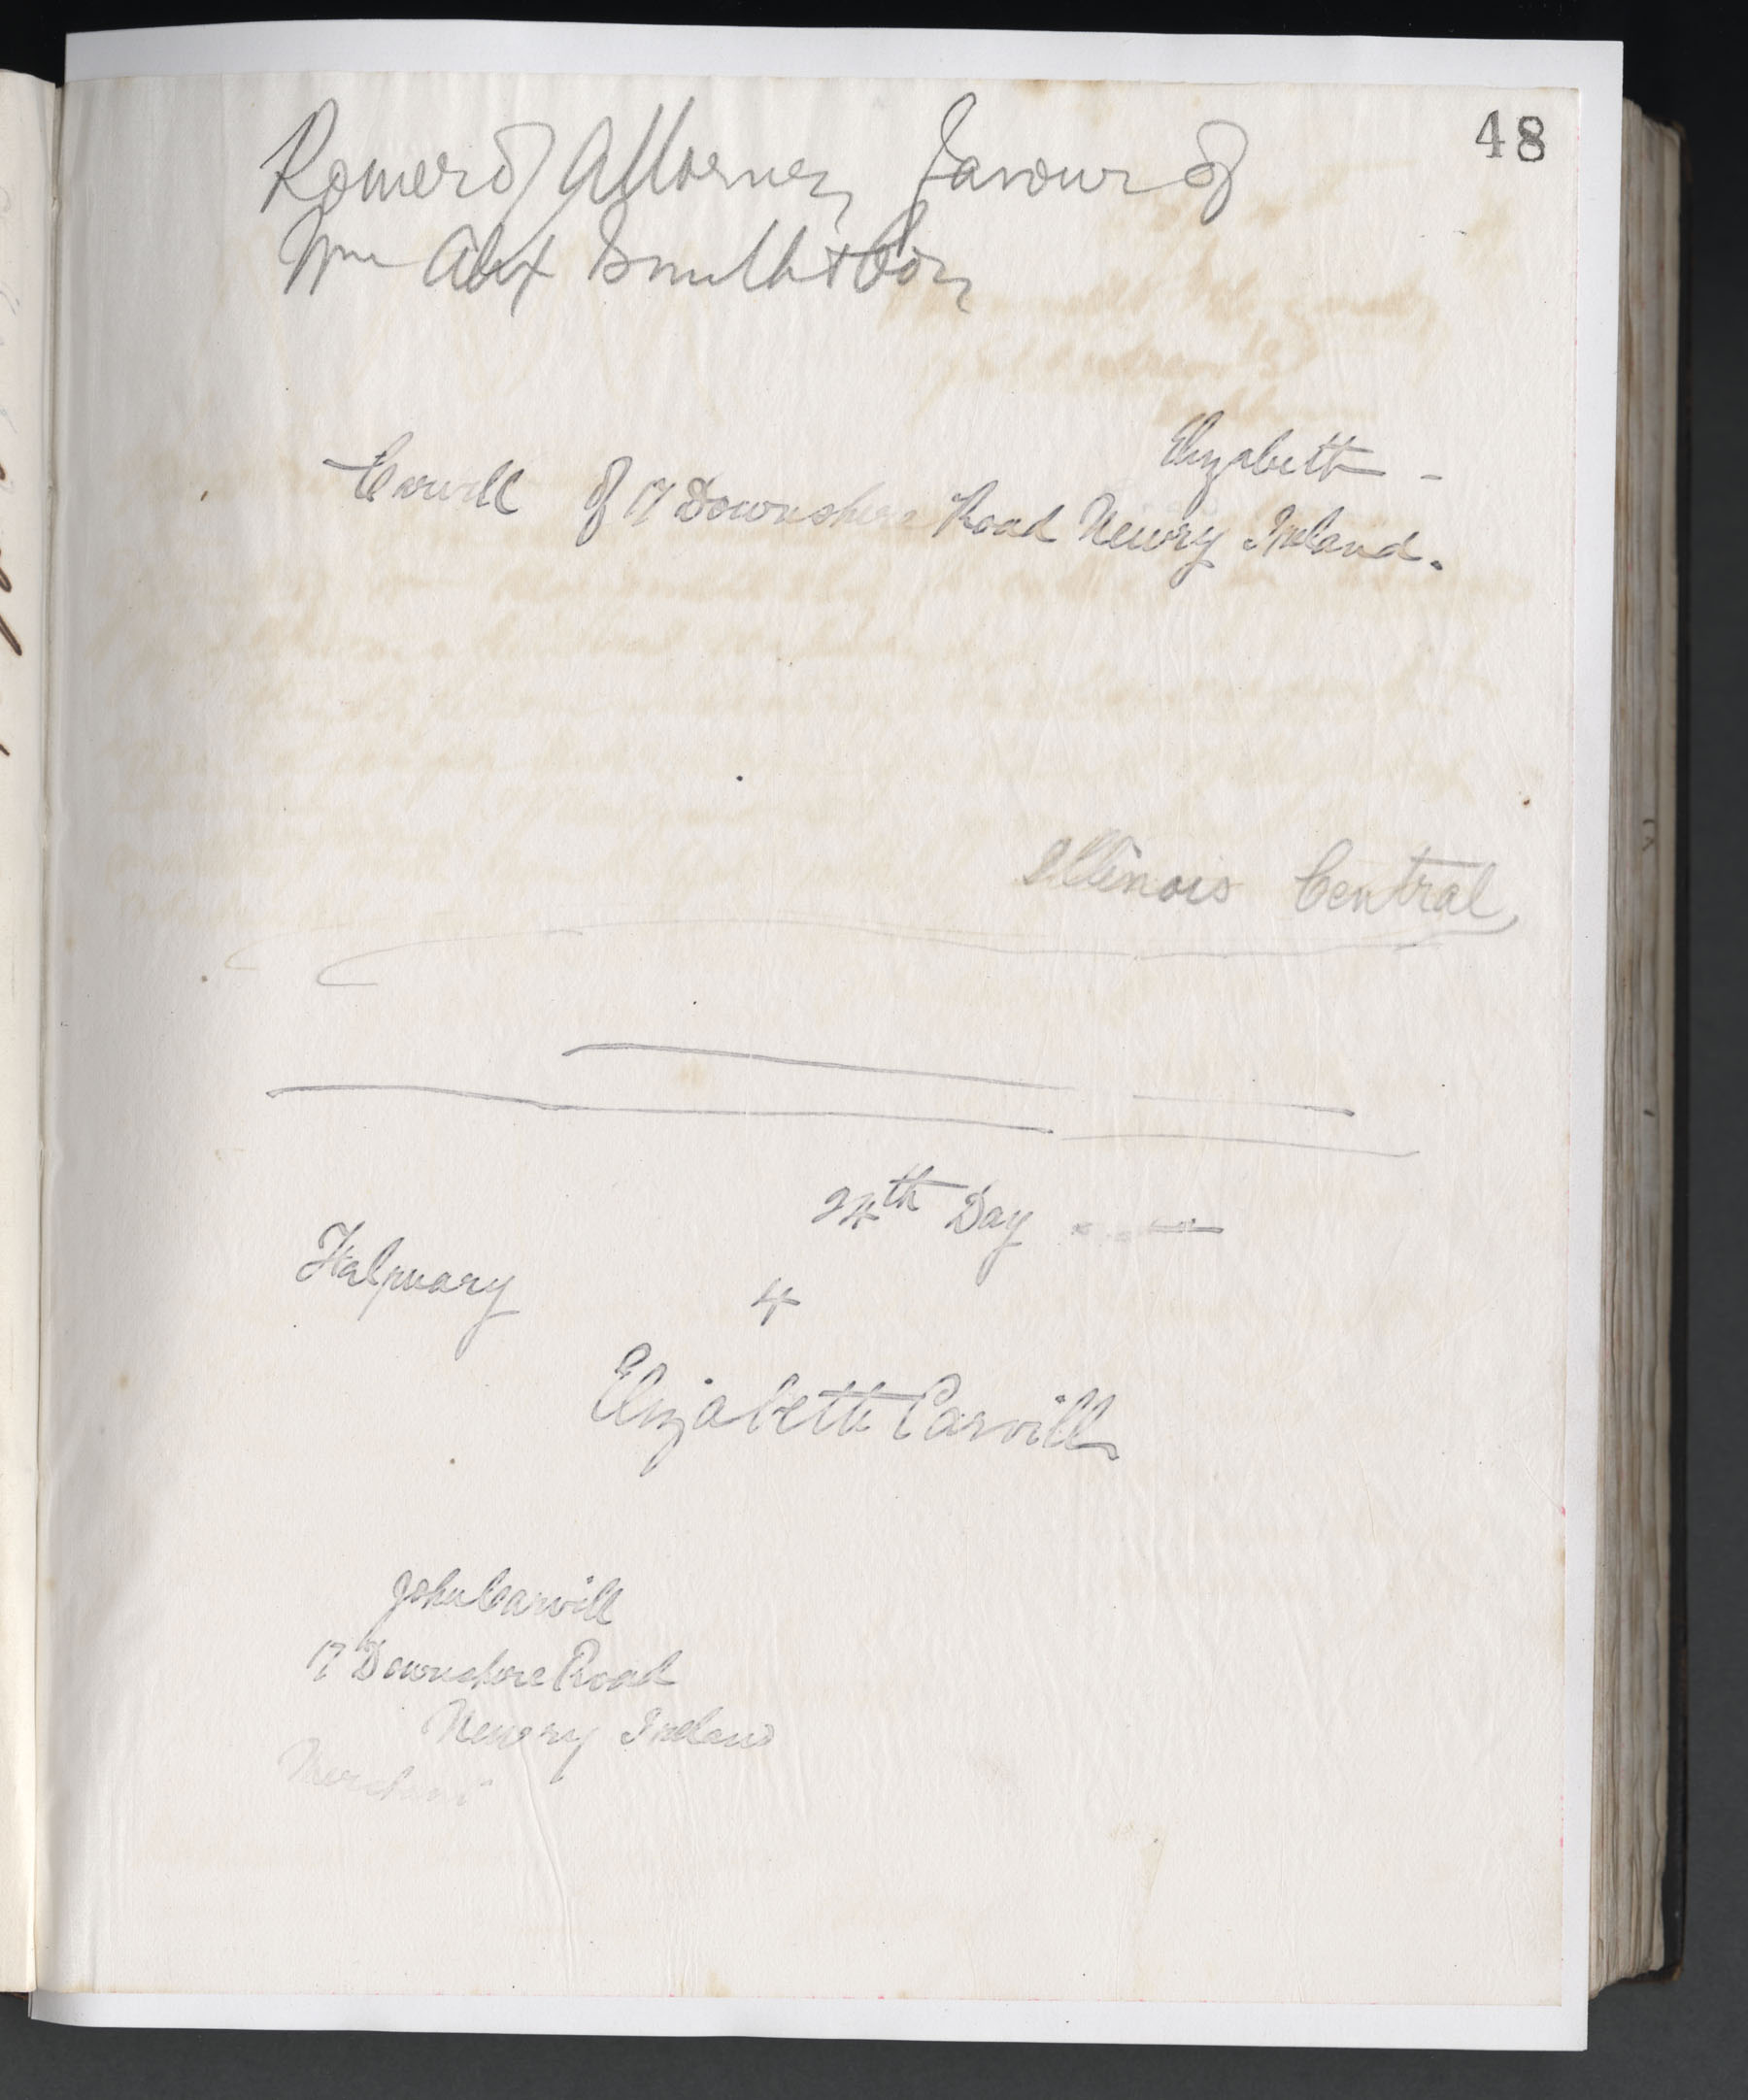 48
Power of Attorney favour of
Wm Alex Smith & Co
Elizabeth -
Carvill of 17 Downshire Road Newry Ireland.
Illinois Central
24th Day
4
Elizabeth Carvill
John Carvill
17 Downshire Road
Newry Ireland
Merchant